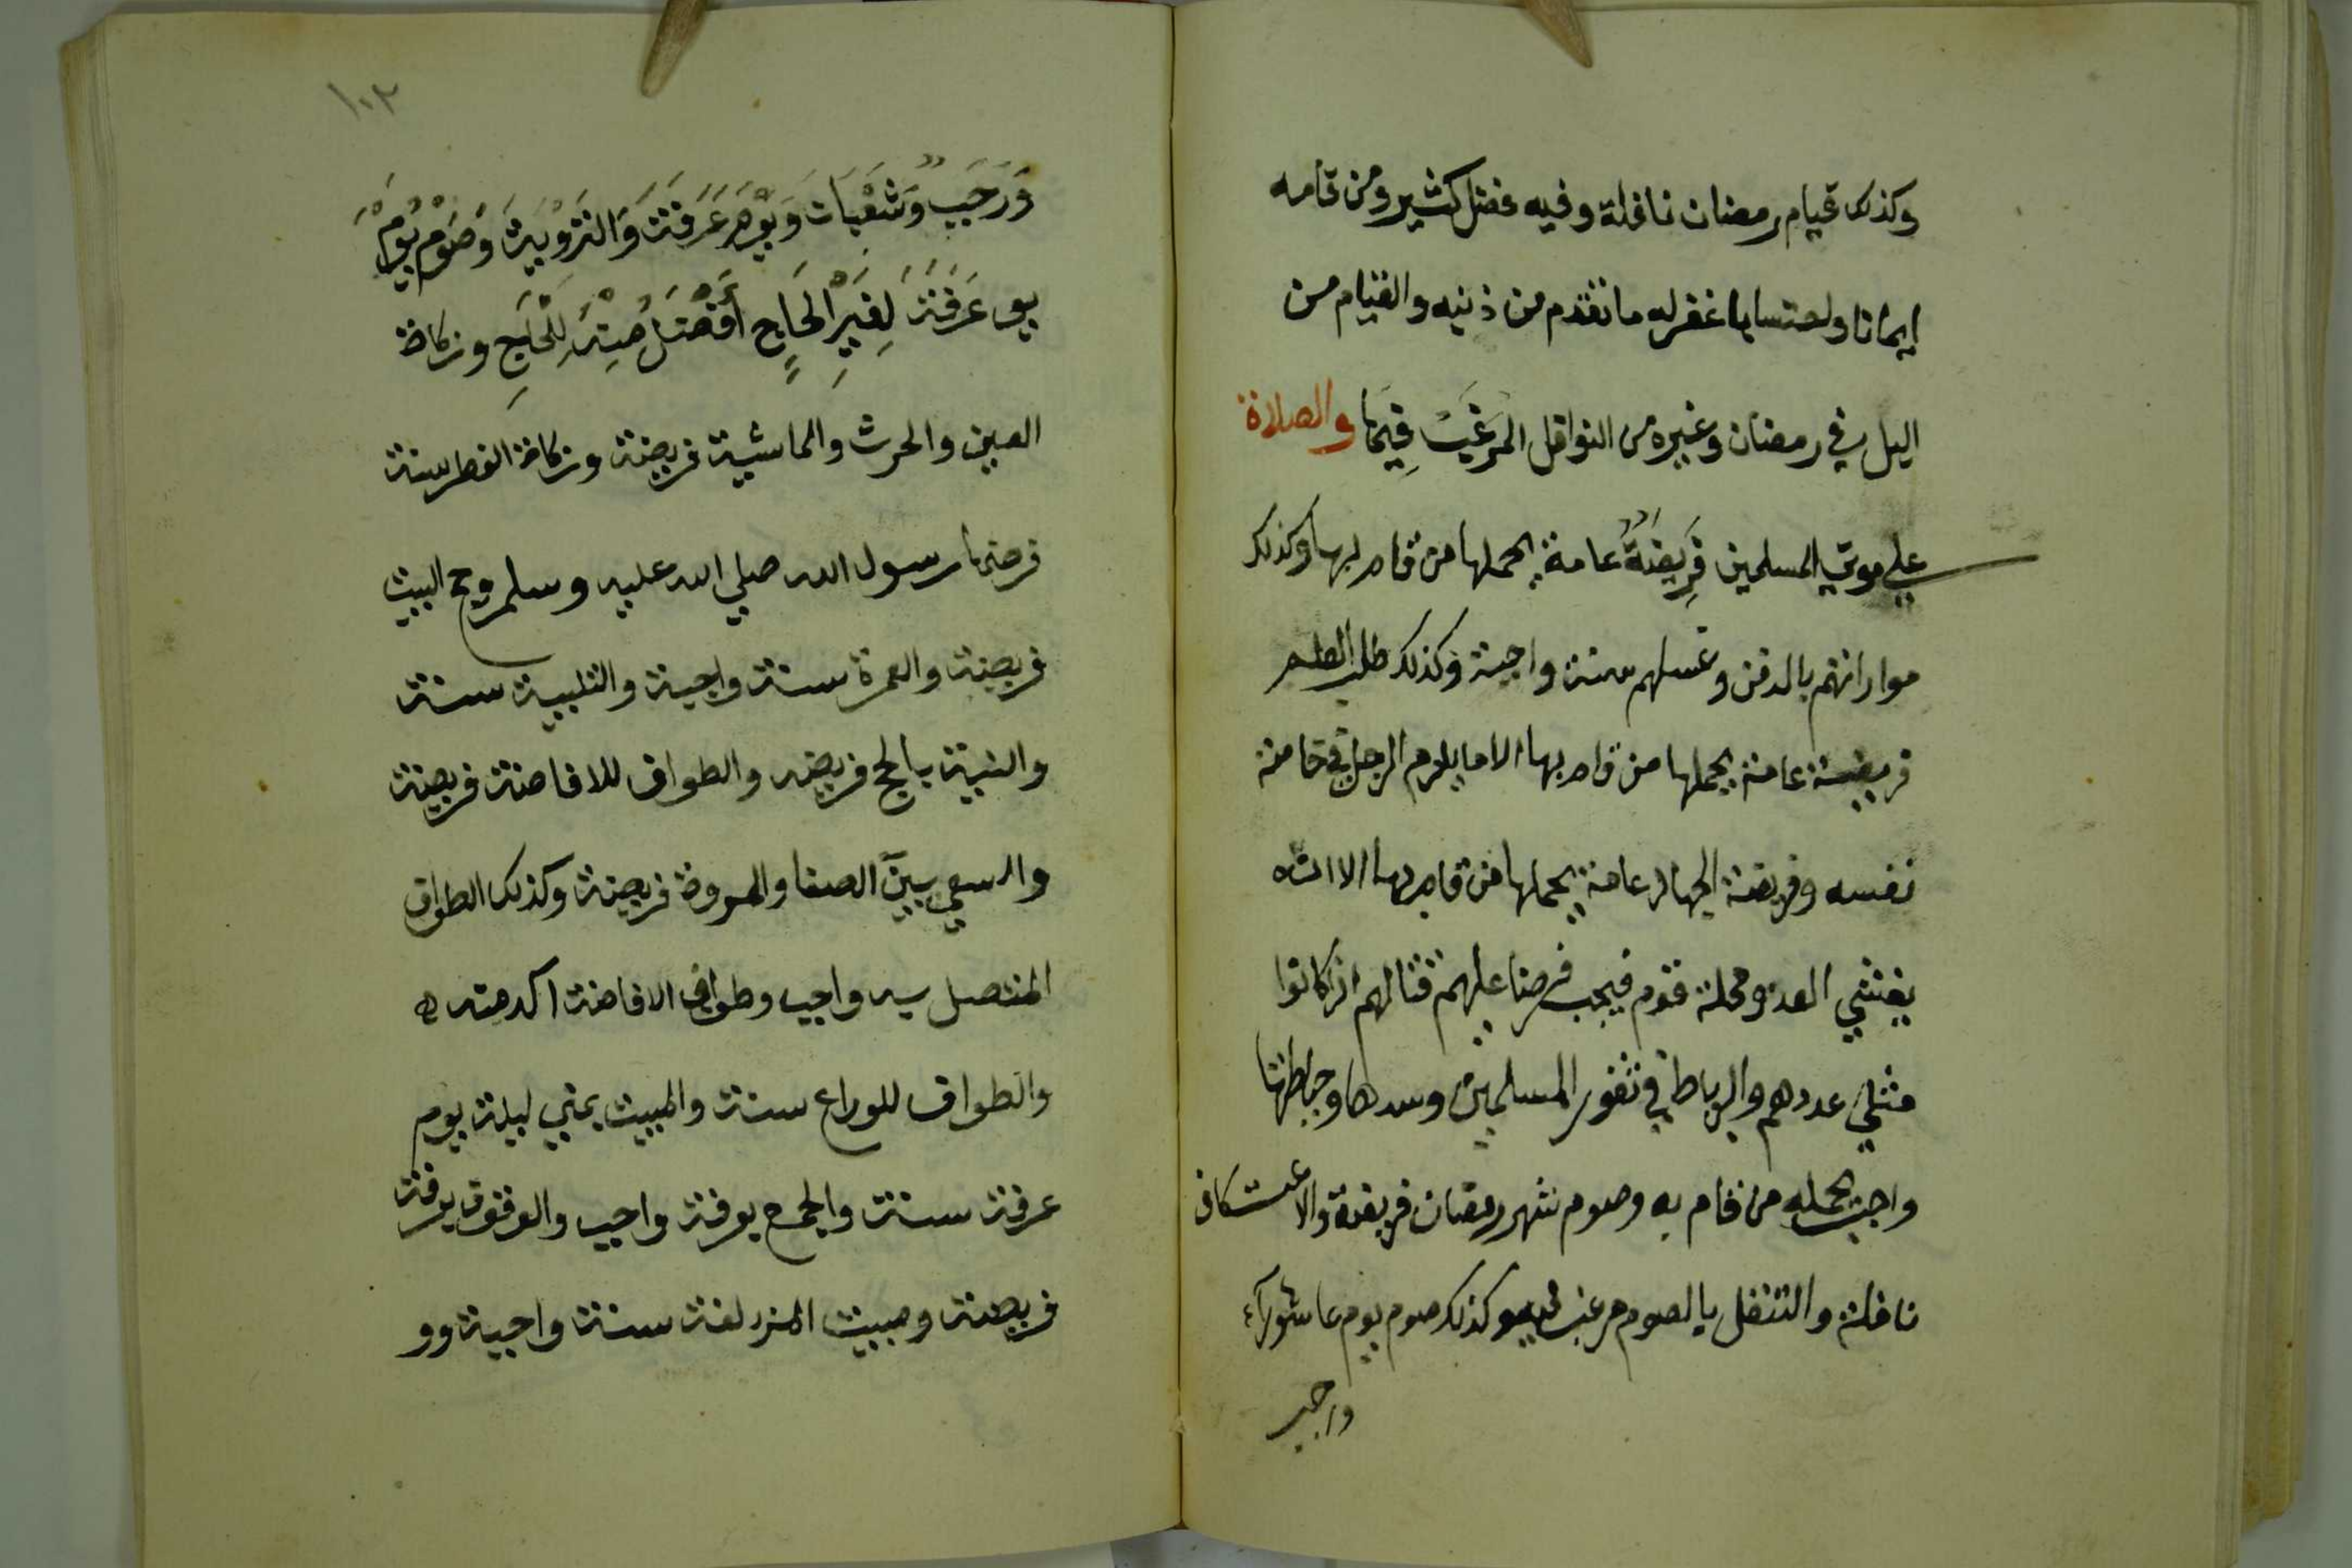 وكذلك قيام رمضان نافلة وفيه فضل كثير ومن قامه
ايمانا واحتسابا غفر له ما تقدم من ذنبه والقيام من
اليل في رمضان وغيره من النوافل المرَغَّب فِيهَا والصلاة
على موتي المسلمين فَرِيضَةٌ عامة يحملها من قام بها وكذلك
مواراتهم بالدفن وغسلهم سنة واجبة وكذلك طلب العلم
فريضة عامة يحملها من قام بها الا ما يلزم الرجل في خاصة
نفسه وفريضة الجهاد عامة يحملها من قام بها الا ان
يغشي العدو محلة قوم فيجب فرضا عليهم قتالهم اذا كانوا
مثلي عددهم والرباط في ثغور المسلمين وسدها وحياطتها
واجب يحمله من قام به وصوم شهر رمضان فريضة والاعتكاف
نافلة والتنفل بالصوم مرغب فيه وكذلك صوم يوم عاشورآء
ورجب
١٠٢
وَرَجَبٌ وَشَعْبَان وَيَوْم عَرَفَة وَالتَرْوِيَة وَصَوْم يَوْم
يو عَرَفَة لِغَيْرِ الحَاجِ أَفْضَلُ مِنْهُ لِلْحَاجِ وزكاة
العين والحرث والماشية فريضة وزكاة الفطر سنة
فرضها رسول الله صلي الله عليه وسلم وحج البيت
فريضة والعمرة سنة واجبة والتلبية سنة
والنية بالحج فريضه والطواف للافاضة فريضة
والسعي بين الصفا والمروة فريضة وكذلك الطواف
المتصل به واجب وطواف الافاضة اكد منه
والطواف للوداع سنة والمبيت بمني ليلة يوم
عرفة سنة والجمع بعرفة واجب والوقوف بعرفة
فريضة ومبيت المزدلفة سنة واجبة وو